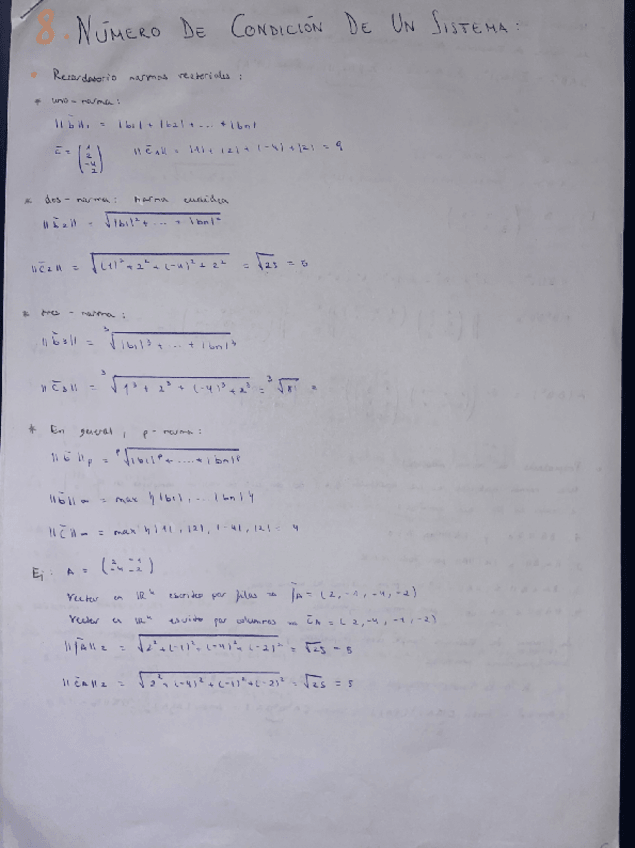 8. NÚMERO DE CONDICIÓN DE UN SISTEMA:
• Recordatorio normas vectoriales:
* uno-norma:
||b̄||₁ = |b₁| + |b₂| + ... + |bn|
c̄ = (1 2 -4 2) ||c̄||₁ = |1| + |2| + |-4| + |2| = 9
* dos-norma: norma euclídea
||b̄₂|| = √|b₁|² + ... + |bn|²
||c̄₂|| = √(1)² + 2² + (-4)² + 2² = √25 = 5
* tres-norma:
||b̄₃|| = ³√|b₁|³ + ... + |bn|³
||c̄₃|| = ³√1³ + 2³ + (-4)³ + 2³ = ³√ =
* En general, p-norma:
||b̄||p = ᵖ√|b₁|ᵖ + .... + |bn|ᵖ
||b̄||∞ = max {|b₁|, ... |bn|}
||c̄||∞ = max {|1|, |2|, |-4|, |2|} = 4
Ej: A = (2 -1 -4 -2)
Vector en ℝ⁴ escrito por filas ⇒ f̄A = (2, -1, -4, -2)
Vector en ℝ⁴ escrito por columnas ⇒ c̄A = (2, -4, -1, -2)
||f̄A||₂ = √2² + (-1)² + (-4)² + (-2)² = √25 = 5
||c̄A||₂ = √2² + (-4)² + (-1)² + (-2)² = √25 = 5